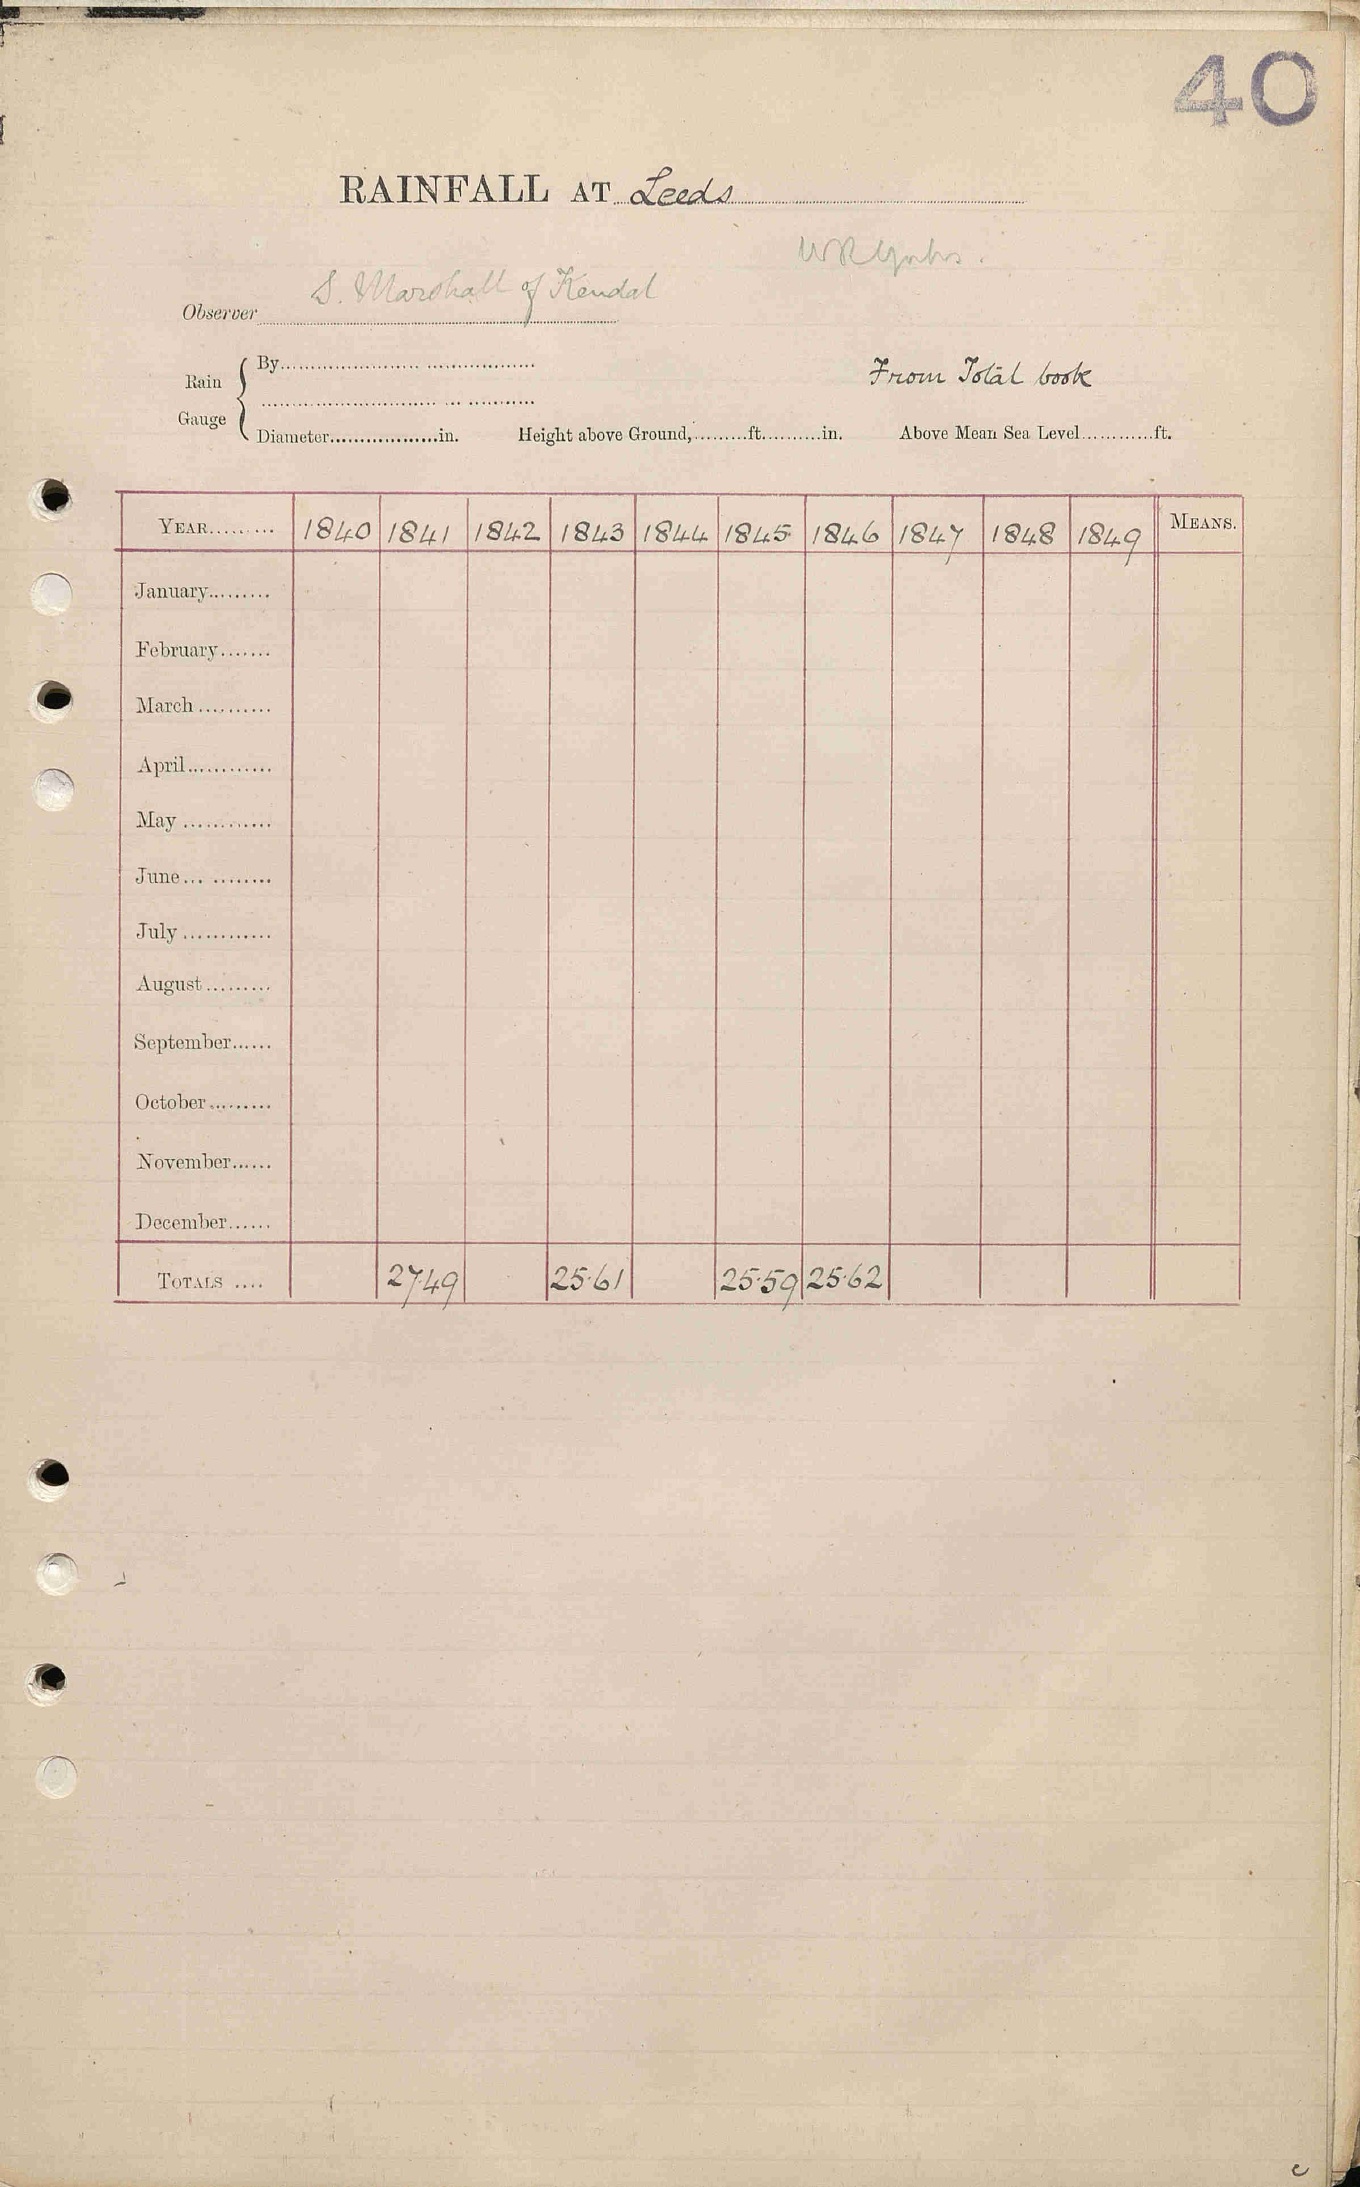 40
RAINFALL AT Leeds
WR Yorks.
Observer S. Marshall of Kendal
Rain Gauge
By
From Total book
Diameter in. Height above Ground, ft. in. Above Mean Sea Level ft.
YEAR 1840 1841 1842 1843 1844 1845 1846 1847 1848 1849 MEANS.
January
February
March
April
May
June
July
August
September
October
November
December
TOTALS 27.49 25.61 25.59 25.62